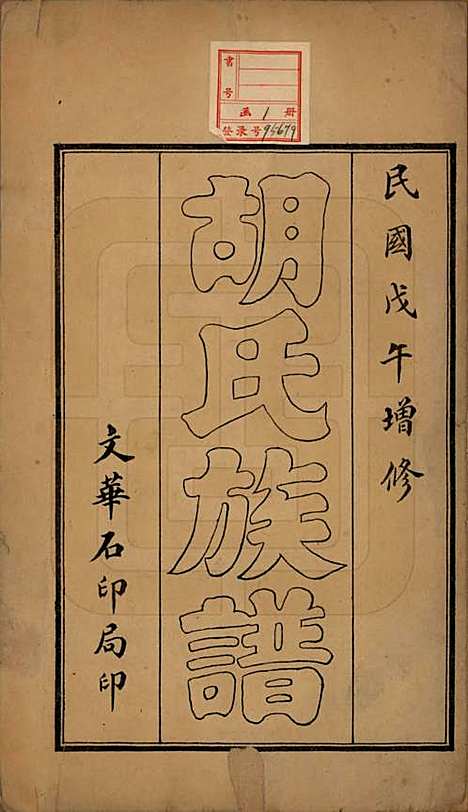 書號
函 1 册
登录号 95679
民國戊午增修
胡氏族譜
文華石印局印